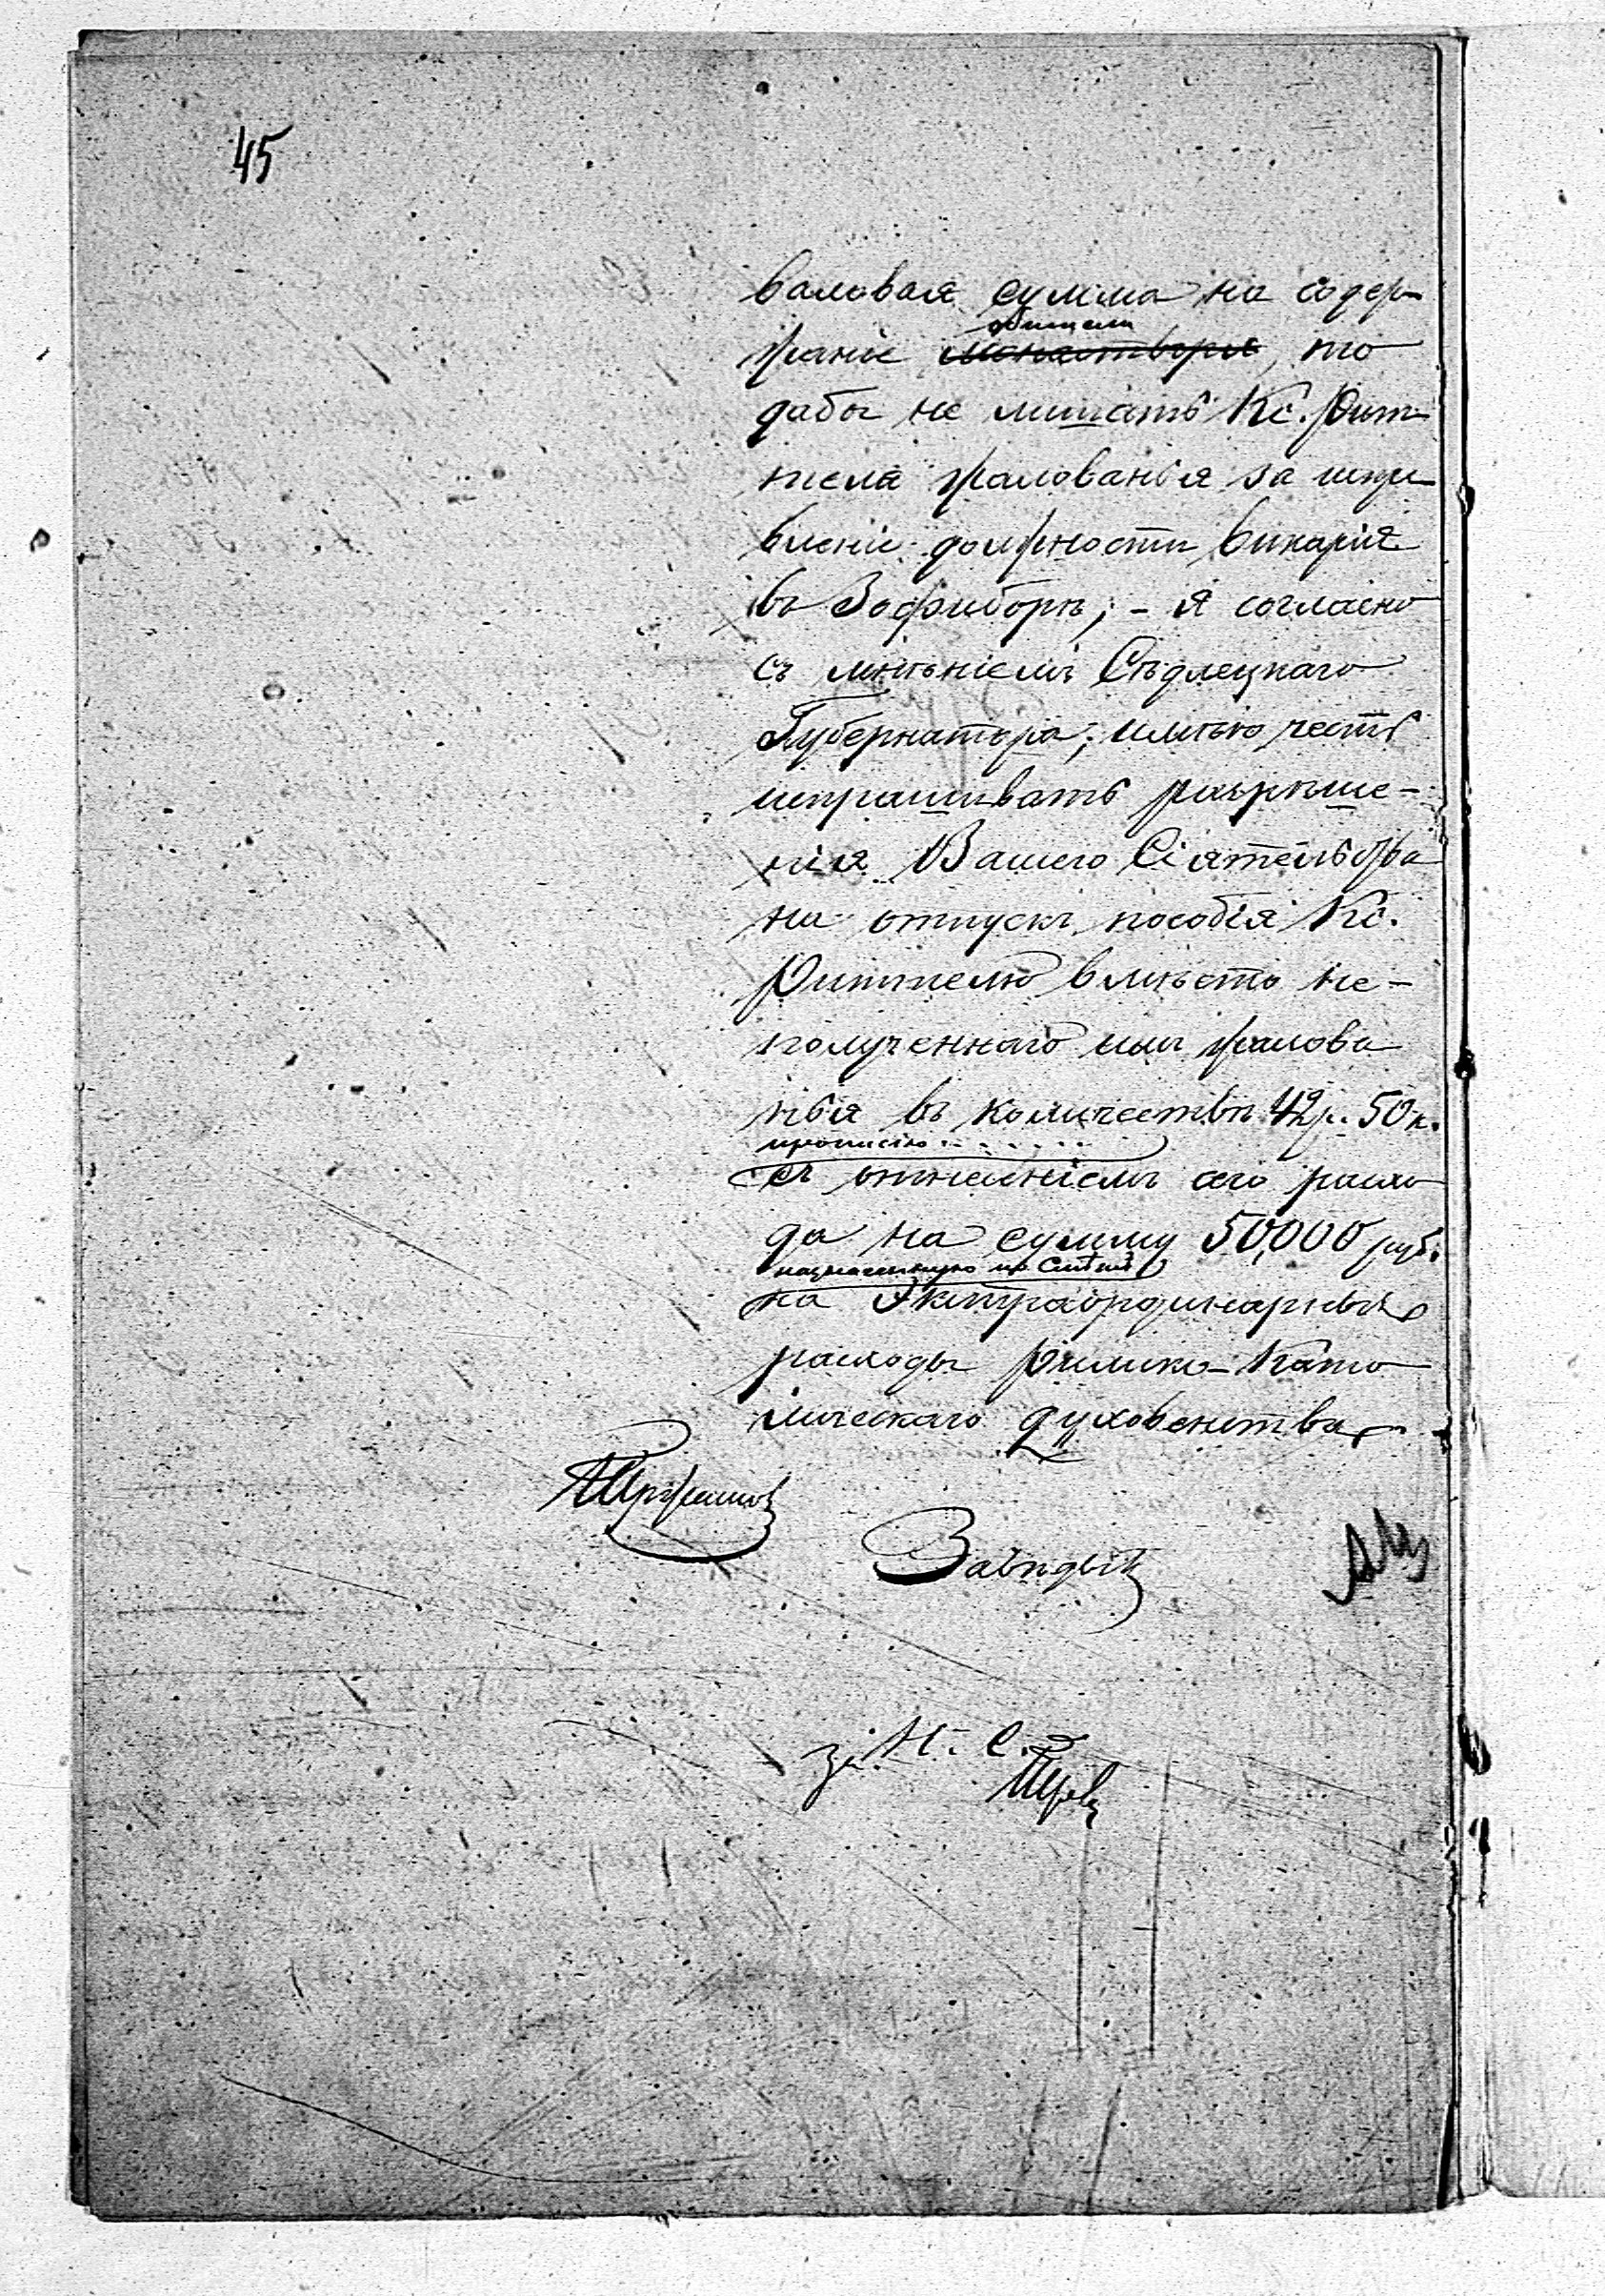 45
валовая сумма на содер-
обители
жаніе монастыря, то
дабы не лишать Кс. Рит-
теля жалованья за испра-
вленіе должности викарія
въ Зосфиборѣ; - я согласно
съ мнѣніемъ Сѣдлецкаго
Губернатора, имѣю честь
испрашивать разрѣше-
нія Вашего Сіятельства
на отпускъ пособія Кс.
Риттелю вмѣсто не-
полученнаго имъ жалова
нья въ количествѣ 42р. 50к.
прописью . . . . . .
съ отнесеніемъ сего расхо
да на сумму 50,000 руб.
назначенную по Смѣтѣ
на Экстраординарные
расходы Римско-Като
лическаго духовенства
За Н. С.